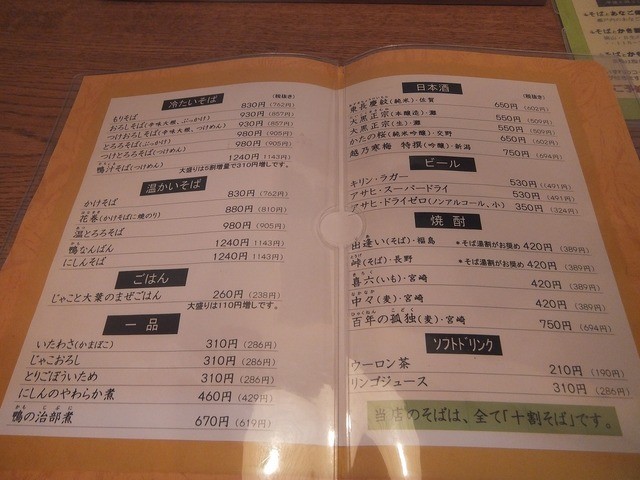 冷たいそば
(税抜き)
もりそば 830円(762円)
おろしそば(辛味大根、ぶっかけ) 930円(857円)
つけおろしそば(辛味大根、つけめん) 930円(857円)
とろろそば(ぶっかけ) 980円(905円)
つけとろろそば(つけめん) 980円(905円)
鴨汁そば(つけめん) 1240円(1143円)
大盛りは5割増量で310円増しです。
温かいそば
かけそば 830円(762円)
花巻(かけそばに焼のり) 880円(810円)
温とろろそば 980円(905円)
鴨なんばん 1240円(1143円)
にしんそば 1240円(1143円)
ごはん
じゃこと大葉のまぜごはん 260円(238円)
大盛りは110円増しです。
一品
いたわさ(かまぼこ) 310円(286円)
じゃこおろし 310円(286円)
とりごぼういため 310円(286円)
にしんのやわらか煮 460円(429円)
鴨の治部煮 670円(619円)
日本酒
(税抜き)
東長慶紋(純米)・佐賀 650円(602円)
大黒正宗(本醸造)・灘 550円(509円)
大黒正宗(生)・灘 550円(509円)
かたの桜(純米吟醸)・交野 650円(602円)
越乃寒梅 特撰(吟醸)・新潟 750円(694円)
ビール
キリン・ラガー 530円(491円)
アサヒ・スーパードライ 530円(491円)
アサヒ・ドライゼロ(ノンアルコール、小) 350円(324円)
焼酎
出逢い(そば)・福島 *そば湯割がお奨め 420円(389円)
峠(そば)・長野 *そば湯割がお奨め 420円(389円)
喜六(いも)・宮崎 420円(389円)
中々(麦)・宮崎 420円(389円)
百年の孤独(麦)・宮崎 750円(694円)
ソフトドリンク
ウーロン茶 210円(190円)
リンゴジュース 310円(286円)
当店のそばは、全て「十割そば」です。